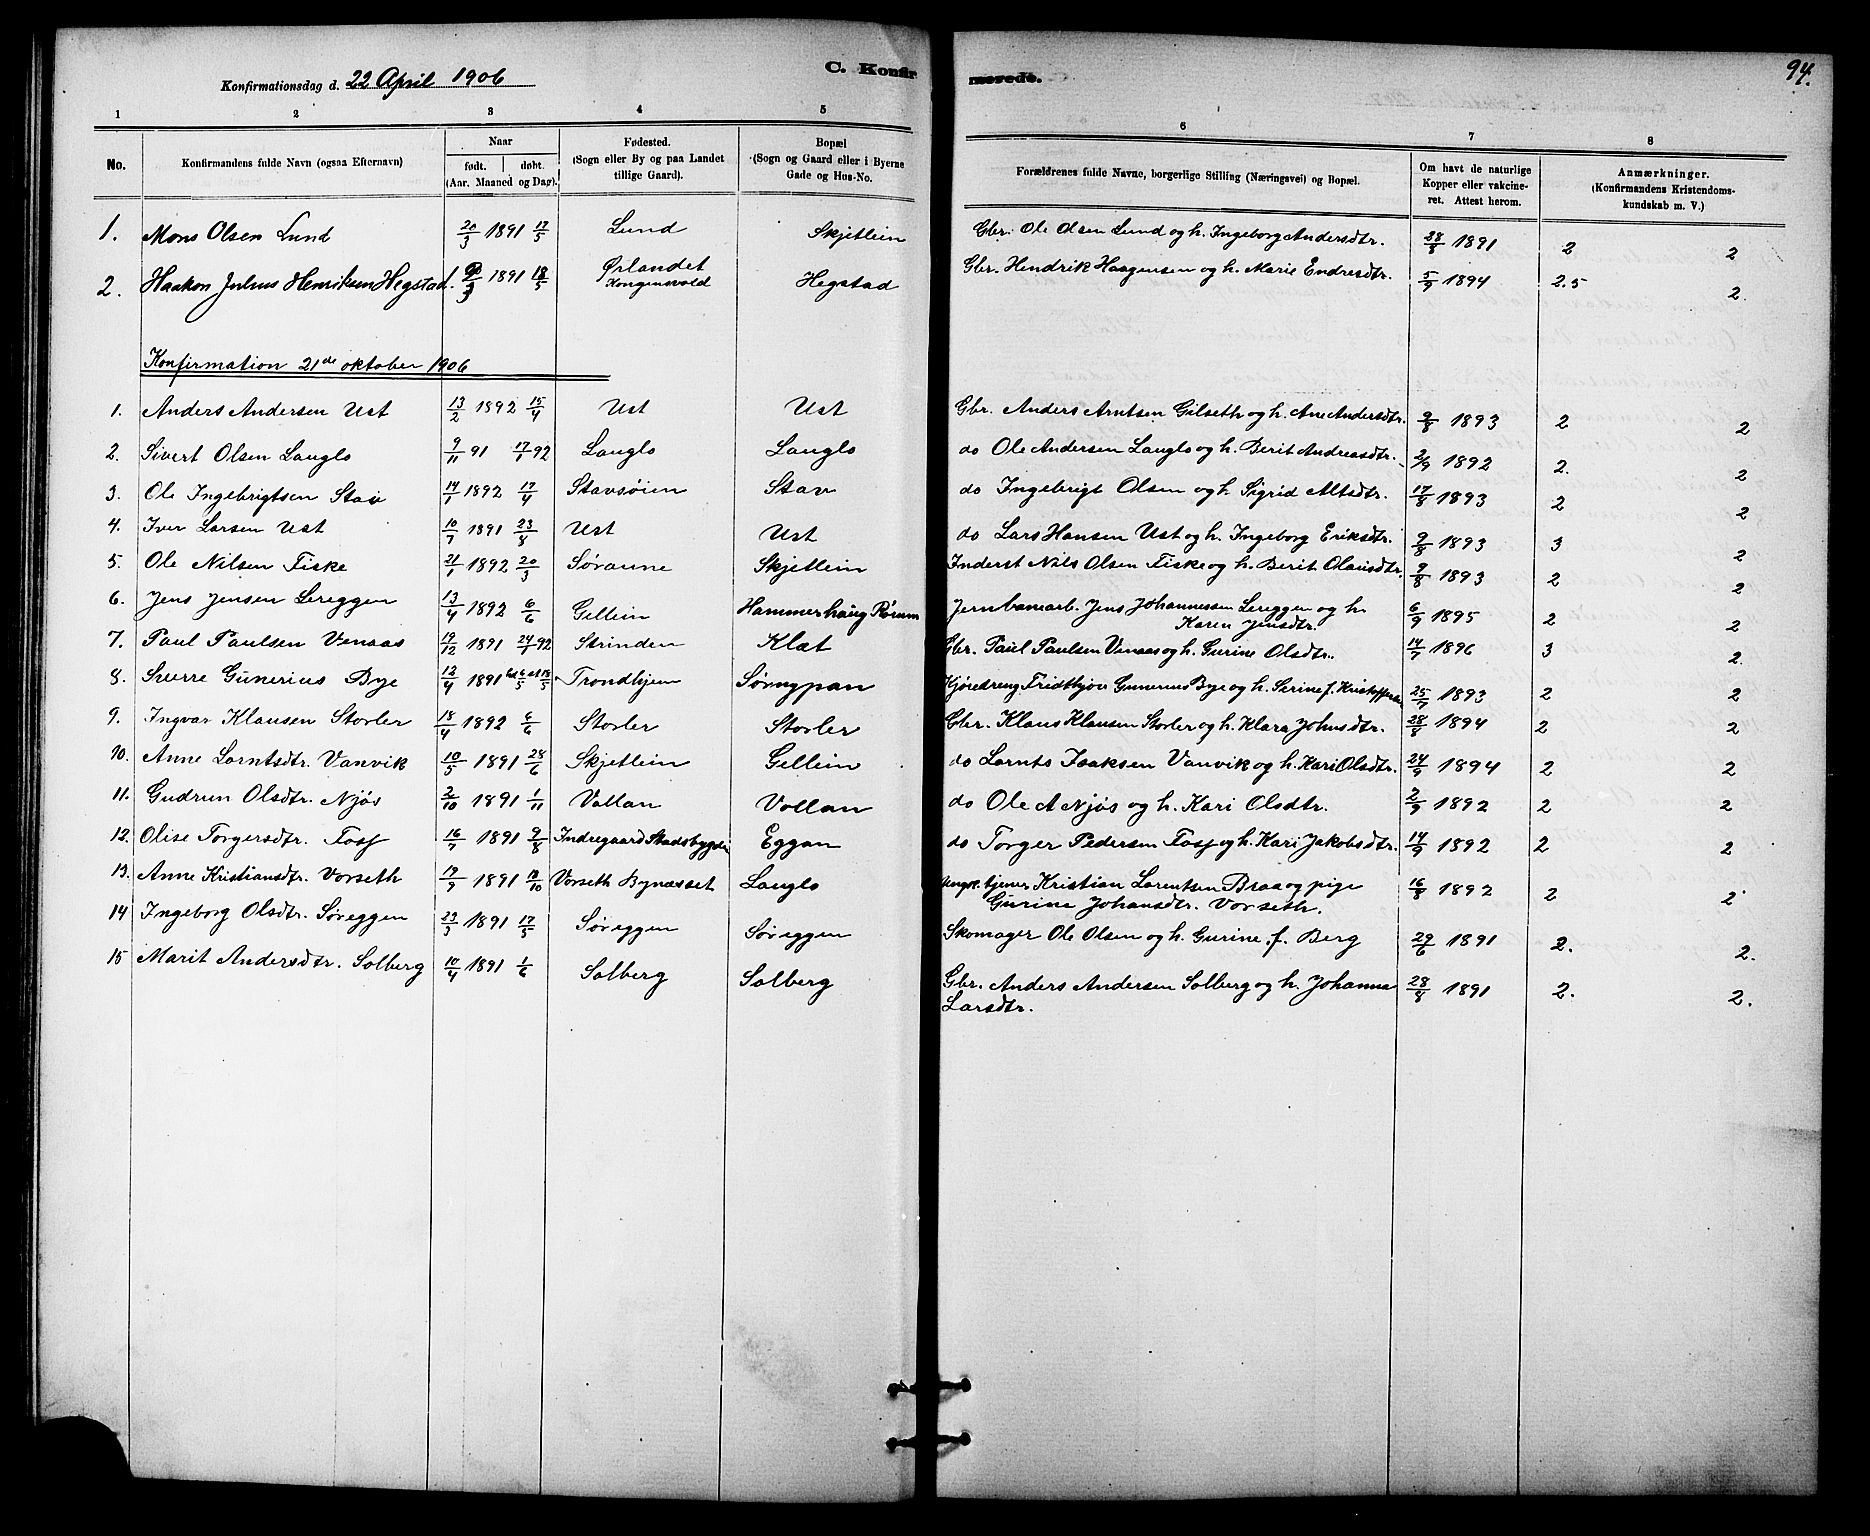 Konfirmationsdag d. 22 April 1906
C. Konfirmerede.
94.
1 2 3 4 5 6 7 8
No. Konfirmandens fulde Navn (ogsaa Efternavn) Naar født. døbt. (Aar. Maaned og Dag). Fødested. (Sogn eller By og paa Landet tillige Gaard). Bopæl (Sogn og Gaard eller i Byerne Gade og Hus-No. Forældrenes fulde Navne, borgerlige Stilling (Næringsvei) og Bopæl. Om havt de naturlige Kopper eller vakcineret. Attest herom. Anmærkninger. (Konfirmandens Kristendomskundskab m. V.)
1. Mons Olsen Lund 20/3 1891 17/5 Lund Skjetlein Gbr. Ole Olsen Lund og h. Ingeborg Andersdtr. 28/8 1891 2 2
2. Haakon Julius Henriksen Hegstad. 1891 18/5 Ørlandet Kongensvold Hegstad Gbr. Hendrik Haagensen og h. Marie Endresdtr. 5/9 1894 2.5 2.
Konfirmation 21de oktober 1906
1. Anders Andersen Ust 13/2 1892 15/4 Ust Ust Gbr. Anders Arntsen Gilseth og h. Ane Andersdtr. 9/8 1893 2 2
2. Sivert Olsen Langlo 9/11 91 17/1 92 Langlo Langlo do Ole Andersen Langlo og h. Berit Andreasdtr. 2/9 1892 2. 2
3. Ole Ingebrigtsen Stav 14/1 1892 17/4 Stavsøien Stav do Ingebrigt Olsen og h. Sigrid Altsdtr. 17/8 1893 2 2
4. Iver Larsen Ust 10/7 1891 23/8 Ust Ust do Lars Hansen Ust og h. Ingeborg Eriksdtr. 9/8 1893 3 2
5. Ole Nilsen Fiske 21/1 1892 20/3 Søraune Skjetlein Inderst Nils Olsen Fiske og h. Berit Olausdtr. 9/8 1893 2 2
6. Jens Jensen Lereggen 13/4 1892 6/6 Gellein Hammerhaug Jernbanearb. Jens Johannessen Lereggen og h. Karen Jensdtr. 6/9 1895 2 2
7. Paul Paulsen Venaas 19/12 1891 24/1 92 Strinden Klæt Gbr. Paul Paulsen Venaas og h. Gurine Olsdtr. 14/7 1896 3 2.
8. Sverre Gunerius Bye 12/4 1891 Trondhjem Sørnypan Kjøredreng Fridthjov Gunerius Bye og h. Serine f. Kristoffersen 25/7 1893 2 2
9. Ingvar Klausen Storler 18/4 1892 6/6 Storler Storler Gbr. Klaus Klausen Storler og h. Klara Johnsdtr. 28/8 1894 2 2
10. Anne Lorntsdtr. Vanvik 10/5 1891 28/6 Skjetlein Gellein do Lornts Isaksen Vanvik og h. Kari Olsdtr. 24/9 1894 2 2
11. Gudrun Olsdtr. Njøs 2/10 1891 1/11 Vollan Vollan do Ole A Njøs og h. Kari Olsdtr. 2/9 1892 2 2
12. Olise Torgersdtr. Fosf 16/7 1891 9/8 Indregaard Stadsbygden Eggan do Torger Pedersen Fosf og h. Kari Jakobsdtr. 14/9 1892 2 2
13. Anne Kristiansdtr. Vorseth 19/9 1891 18/10 Vorseth Bynæsset Langlo tjener Kristian Lorentsen Braa og pige Gurine Johansdtr. Vorseth. 16/8 1892 2 2
14 Ingeborg Olsdtr. Søreggen 23/3 1891 17/5 Søreggen Søreggen Skomager Ole Olsen og h. Gurine f. Berg 29/6 1891 2. 2.
15 Marit Andersdtr. Solberg 10/4 1891 1/6 Solberg Solberg Gbr. Anders Andersen Solberg og h. Johanna Larsdtr. 28/8 1891 2. 2.